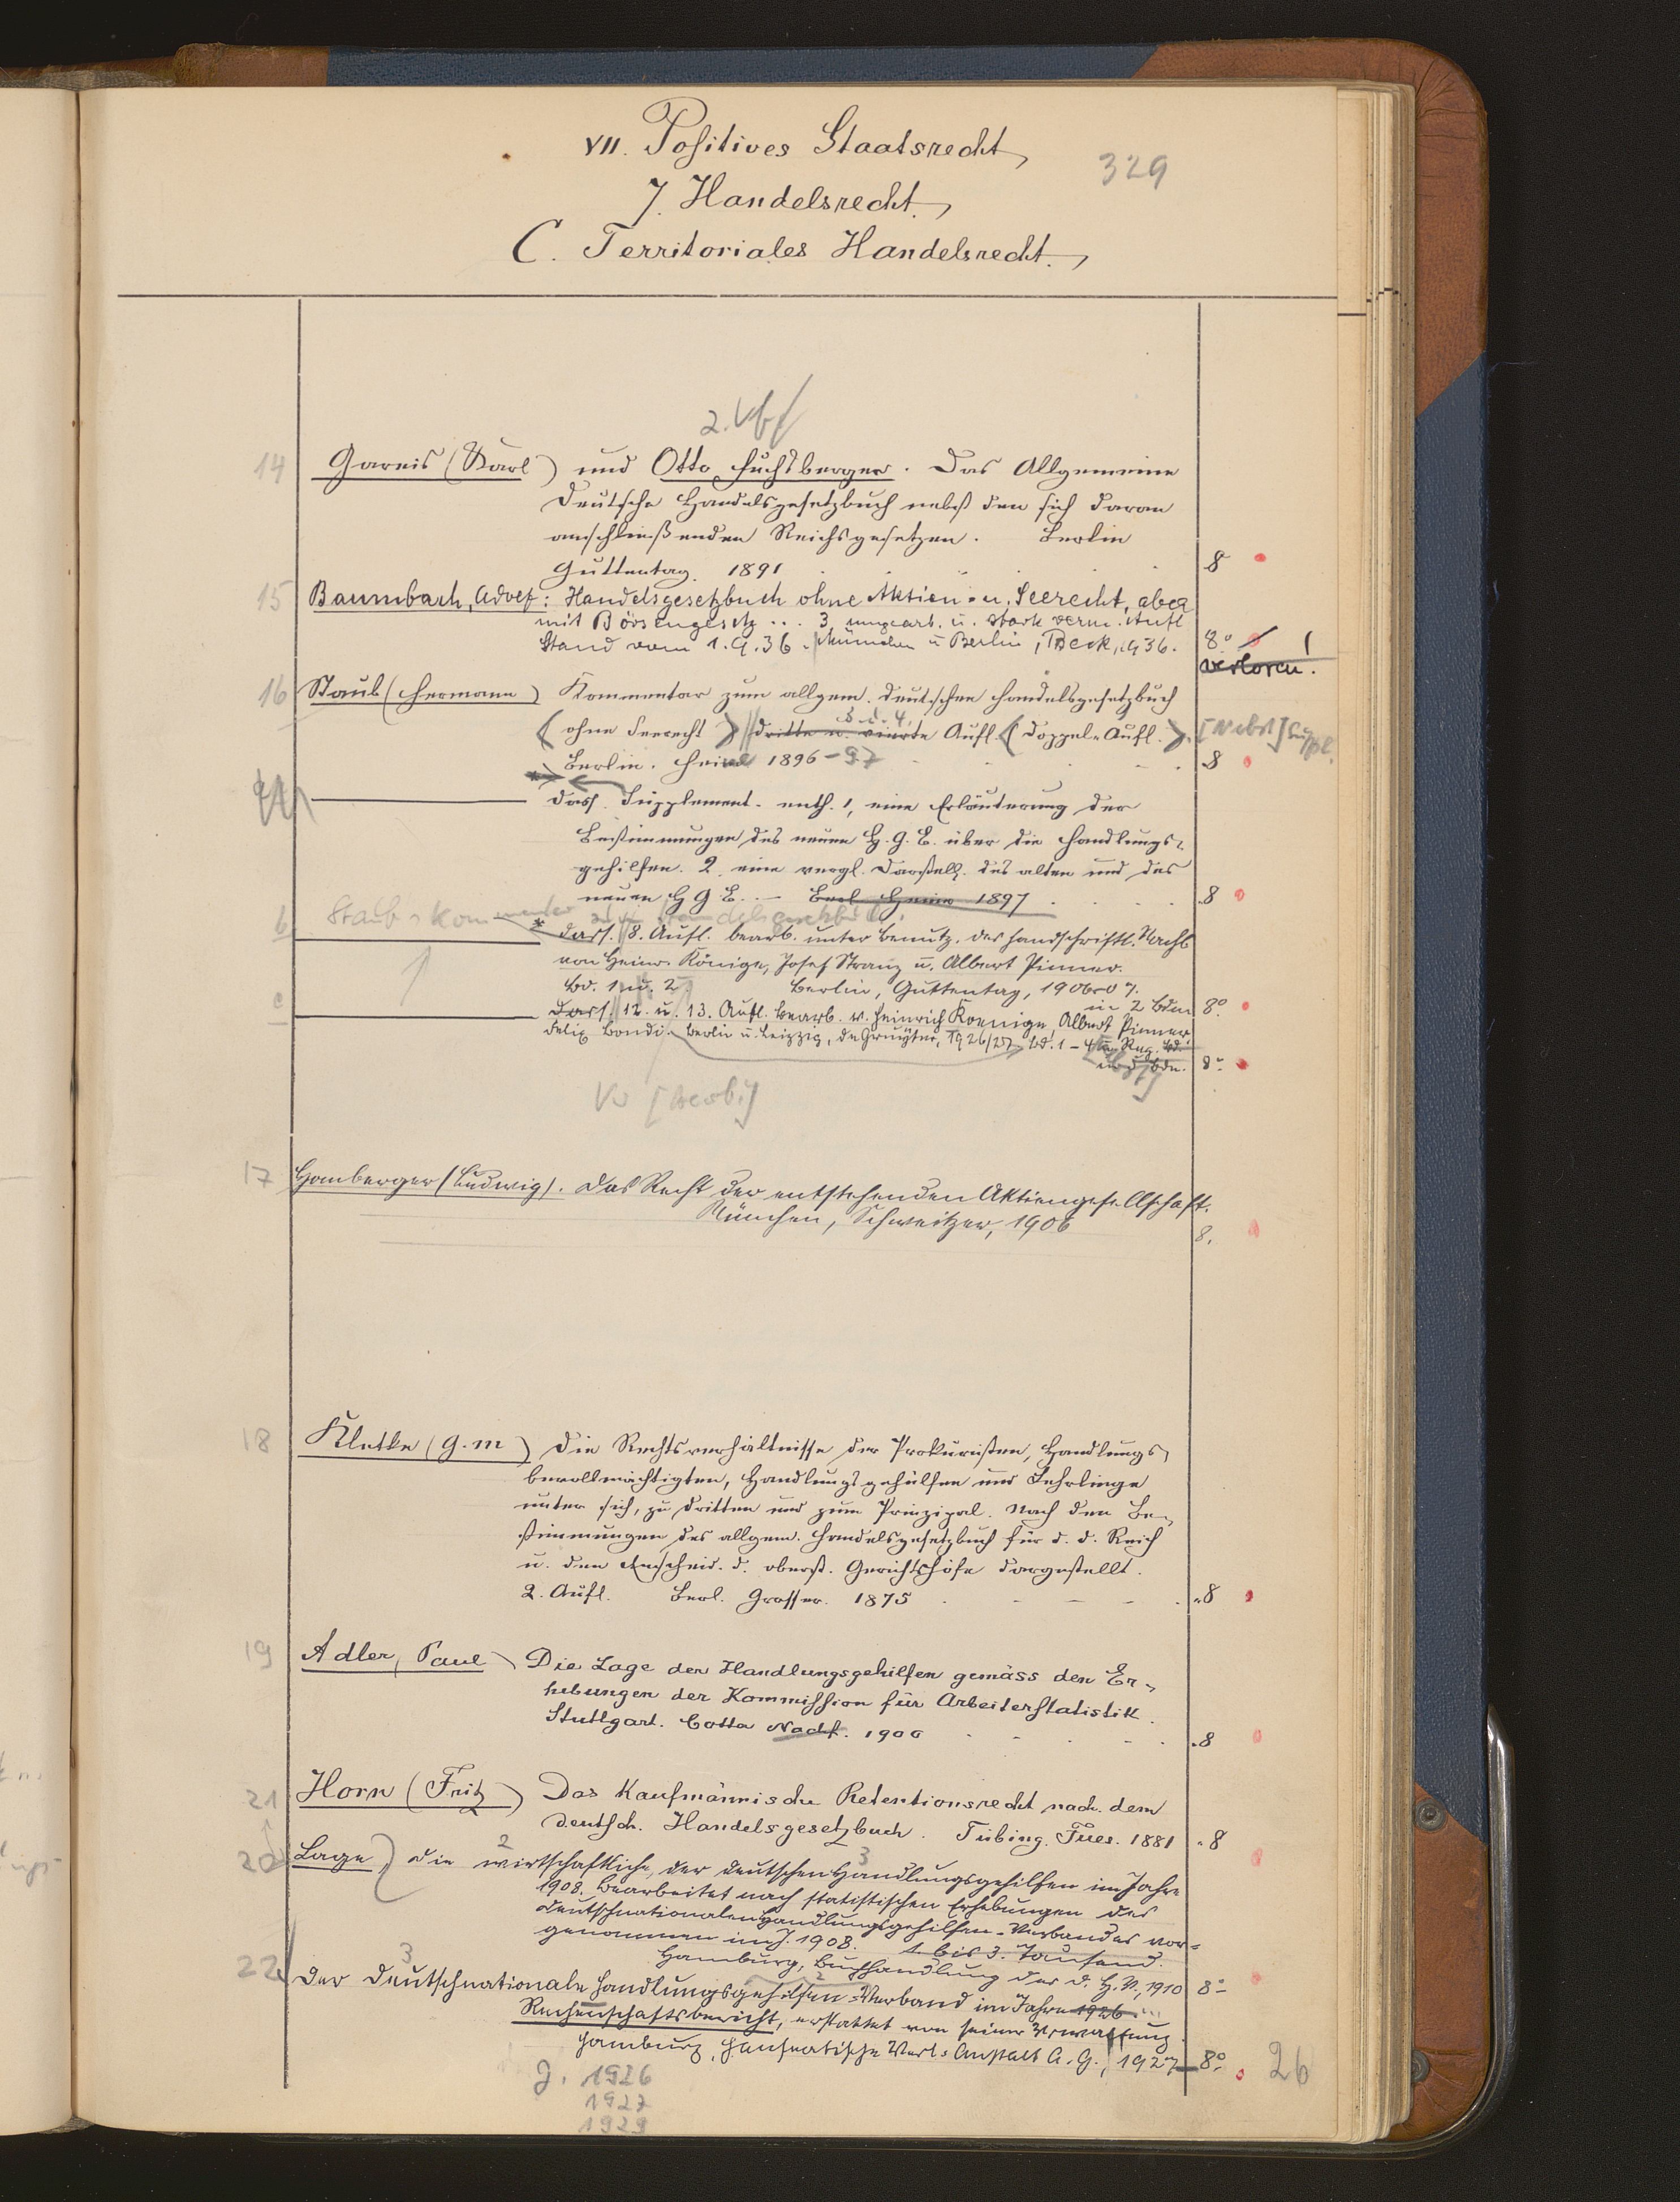 VII. Positives Staatsrecht
329
7. Handelsrecht.
C. Territoriales Handelsrecht.
14 Gareis (Karl) und Otto Fuchsberger. Das Allgemeine
Deutsche Handelsgesetzbuch nebst den sich daran
anschließenden Reichsgesetzen. Berlin
Guttentag. 1891 8
15 Baumbach, Adolf: Handelsgesetzbuch ohne Aktien- u. Seerecht, aber
mit Börsengesetz ... 3. umgearb. u. stark verm. Aufl
Stand vom 1.9.36. München u Berlin, Beck, 1936. 8º
verloren.
16 Staub (Hermann) Kommentar zum allgem. deutschen Handelsgesetzbuch
3. u. 4.
(ohne Seerecht) dritte u. vierte Aufl. (Doppel-Aufl.). [Nebst] Suppl.
Berlin. Heine 1896-97 8
dass. Supplement. enth. 1, eine Erläuterung der
Bestimmungen des neuen H. G. B. über die Handlungs-
gehilfen. 2. eine vergl. Darstell. des alten und des
neuen H G B. — Berl Heine 1897 8
b Staubs Kommentar zum Handelsgesetzbuch.
* dass. 8. Aufl. bearb. unter Benutz. des handschriftl. Nachl
von Heinr. Könige, Josef Stranz u. Albert Pinner.
Bd. 1 u. 2. Berlin, Guttentag, 1906-07.
in 2 Bden 8º
c dass. 12. u. 13. Aufl. bearb. v. Heinrich Koenige, Albert Pinner,
Felix Bondi. Berlin u. Leipzig, de Gruyter, 1926/27 Bd. 1-4 u. Reg. Bd.
Bdn. 8º
17 Homberger (Ludwig). Das Recht der entstehenden Aktiengesellschaft.
München, Schweitzer, 1906 8.
18 Kletke (G. M) Die Rechtsverhältnisse der Prokuristen, Handlungs-
bevollmächtigten, Handlungsgehülfen und Lehrlinge
unter sich, zu Dritten und zum Prinzipal. Nach den Be-
stimmungen des allgem. Handelsgesetzbuch für d. d. Reich
u. den Entscheid. d. oberst. Gerichtshöfe dargestellt.
2. Aufl. Berl. Grosser. 1875 8
19 Adler, Paul Die Lage der Handlungsgehilfen gemäss den Er-
hebungen der Kommission für Arbeiterstatistik.
Stuttgart. Cotta Nachf. 1900 8
21 Horn (Fritz) Das Kaufmännische Retentionsrecht nach dem
Deutsch. Handelsgesetzbuch. Tübing. Fues. 1881 8
2 3
20 Lage, die wirtschaftliche, der deutschen Handlungsgehilfen im Jahre
1908. Bearbeitet nach statistischen Erhebungen des
Deutschnationalen Handlungsgehilfen-Verbandes vor-
genommen im J. 1908. 1. bis 3. Tausend.
Hamburg, Buchhandlung des D. H. V., 1910 8º
3 2
22 Der Deutschnationale Handlungsgehilfen-Verband im Jahre 1926...
Rechenschaftsbericht, erstattet von seiner Verwaltung.
Hamburg, Hanseatische Verl.-Anstalt A. G., 1927 8º 26
J. 1926
1927
1929